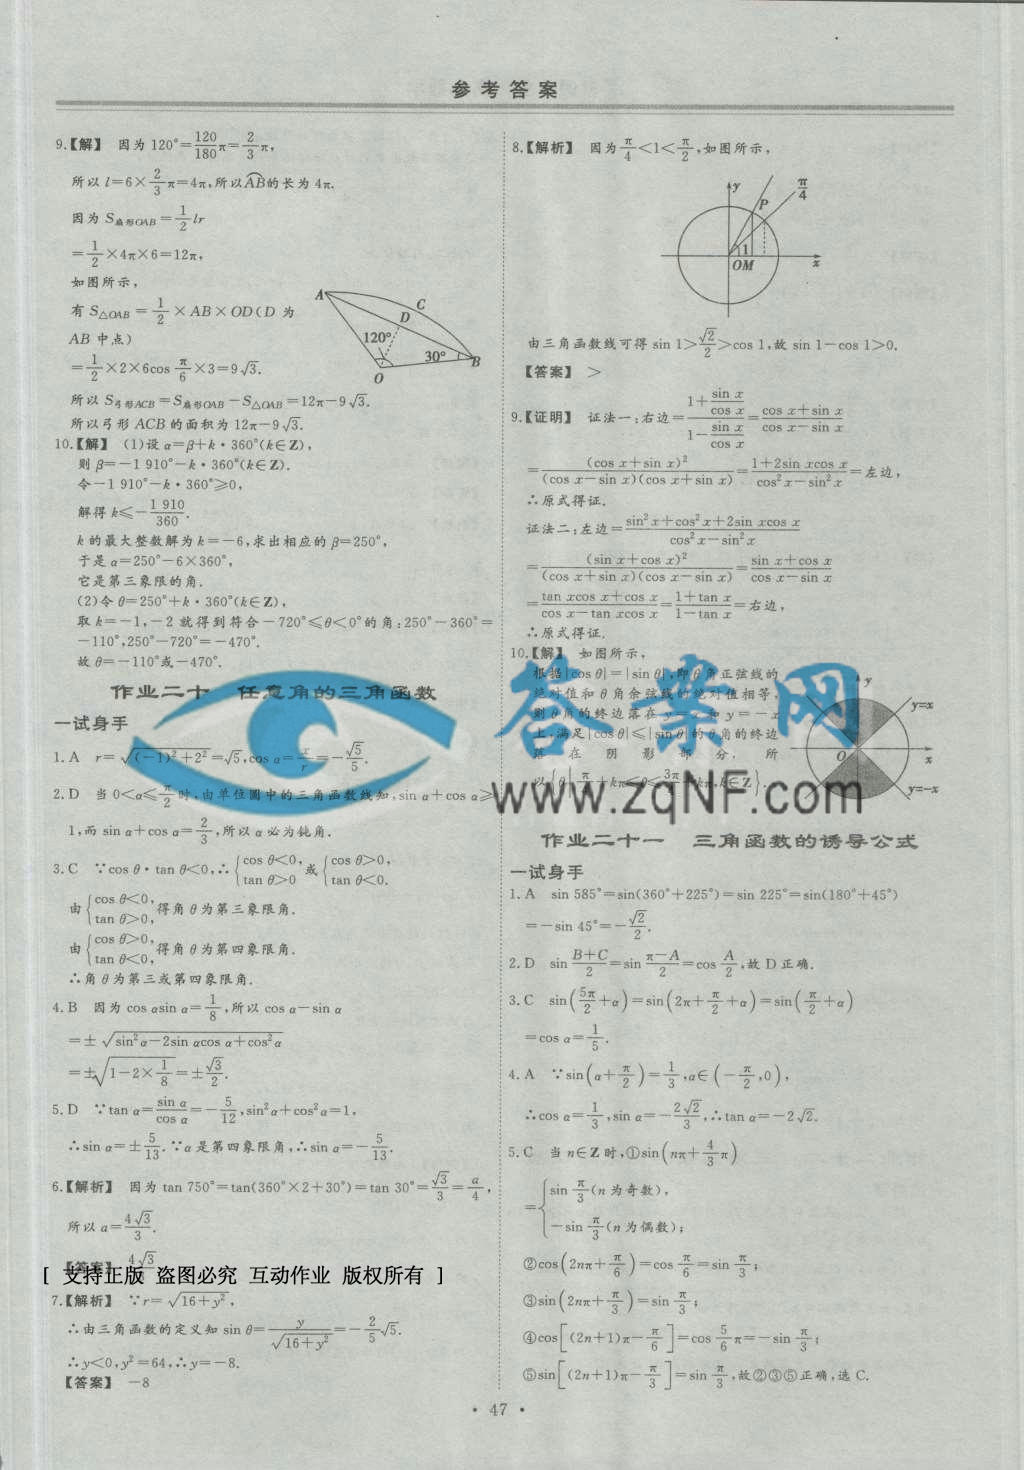 参考答案
9.【解】 因为 120°=120/180π=2/3π,
所以 l=6×2/3π=4π,所以AB的长为 4π.
因为 S扇形OAB=1/2 lr
=1/2×4π×6=12π,
如图所示,
有 S△OAB=1/2×AB×OD(D 为
AB 中点)
=1/2×2×6cos π/6×3=9√3.
A
C
D
120°
30°
B
O
所以 S弓形ACB=S扇形OAB-S△OAB=12π-9√3.
所以弓形 ACB 的面积为 12π-9√3.
10.【解】 (1)设 α=β+k·360°(k∈Z),
则 β=-1 910°-k·360°(k∈Z).
令-1 910°-k·360°≥0,
解得 k≤-1 910/360.
k 的最大整数解为 k=-6,求出相应的 β=250°,
于是 α=250°-6×360°,
它是第三象限的角.
(2)令 θ=250°+k·360°(k∈Z),
取 k=-1,-2 就得到符合-720°≤θ<0°的角:250°-360°=
-110°,250°-720°=-470°.
故 θ=-110°或-470°.
作业二十 任意角的三角函数
一试身手
1. A r=√((-1)²+2²)=√5,cos α=x/r=-√5/5.
2. D 当 0<α≤π/2时,由单位圆中的三角函数线知,sin α+cos α≥
1,而 sin α+cos α=2/3,所以 α 必为钝角.
3. C ∵cos θ·tan θ<0,∴{cos θ<0, tan θ>0 或{cos θ>0, tan θ<0.
由{cos θ<0, tan θ>0,得角 θ 为第三象限角.
由{cos θ>0, tan θ<0,得角 θ 为第四象限角.
∴角 θ 为第三或第四象限角.
4. B 因为 cos αsin α=1/8,所以 cos α-sin α
=±√(sin²α-2sin αcos α+cos²α)
=±√(1-2×1/8)=±√3/2.
5. D ∵tan α=sin α/cos α=-5/12,sin²α+cos²α=1,
∴sin α=±5/13.∵α 是第四象限角,∴sin α=-5/13.
6.【解析】 因为 tan 750°=tan(360°×2+30°)=tan 30°=√3/3=a/4,
所以 a=4√3/3.
【答案】 4√3/3
[ 支持正版 盗图必究 互动作业 版权所有 ]
7.【解析】 ∵r=√(16+y²),
∴由三角函数的定义知 sin θ=y/√(16+y²)=-2/5√5.
∴y<0,y²=64,∴y=-8.
【答案】 -8
8.【解析】 因为π/4<1<π/2,如图所示,
y
P
π/4
1
OM
x
由三角函数线可得 sin 1>√2/2>cos 1,故 sin 1-cos 1>0.
【答案】 >
9.【证明】 证法一:右边=(1+sin x/cos x)/(1-sin x/cos x)=(cos x+sin x)/(cos x-sin x)
=(cos x+sin x)²/((cos x-sin x)(cos x+sin x))=(1+2sin xcos x)/(cos²x-sin²x)=左边,
∴原式得证.
证法二:左边=(sin²x+cos²x+2sin xcos x)/(cos²x-sin²x)
=(sin x+cos x)²/((cos x+sin x)(cos x-sin x))=(sin x+cos x)/(cos x-sin x)
=(tan xcos x+cos x)/(cos x-tan xcos x)=(1+tan x)/(1-tan x)=右边,
∴原式得证.
10.【解】 如图所示,
根据|cos θ|=|sin θ|,即 θ 角正弦线的
绝对值和 θ 角余弦线的绝对值相等,
则 θ 角的终边落在 y=x 和 y=-x
上,满足|cos θ|≤|sin θ|的 θ 角的终边
落在阴影部分.所
以{θ|π/4+kπ≤θ≤3π/4+kπ,k∈Z}.
y
y=x
O
x
y=-x
答案网
www.zqNF.com
作业二十一 三角函数的诱导公式
一试身手
1. A sin 585°=sin(360°+225°)=sin 225°=sin(180°+45°)
=-sin 45°=-√2/2.
2. D sin (B+C)/2=sin (π-A)/2=cos A/2,故 D 正确.
3. C sin(5π/2+α)=sin(2π+π/2+α)=sin(π/2+α)
=cos α=1/5.
4. A ∵sin(α+π/2)=1/3,α∈(-π/2,0),
∴cos α=1/3,sin α=-2√2/3,∴tan α=-2√2.
5. C 当 n∈Z 时,①sin(nπ+4/3π)
={sin π/3(n 为奇数), -sin π/3(n 为偶数);
②cos(2nπ+π/6)=cos π/6=sin π/3;
③sin(2nπ+π/3)=sin π/3;
④cos[(2n+1)π-π/6]=cos 5/6π=-sin π/3;
⑤sin[(2n+1)π-π/3]=sin π/3,故②③⑤正确,选 C.
• 47 •